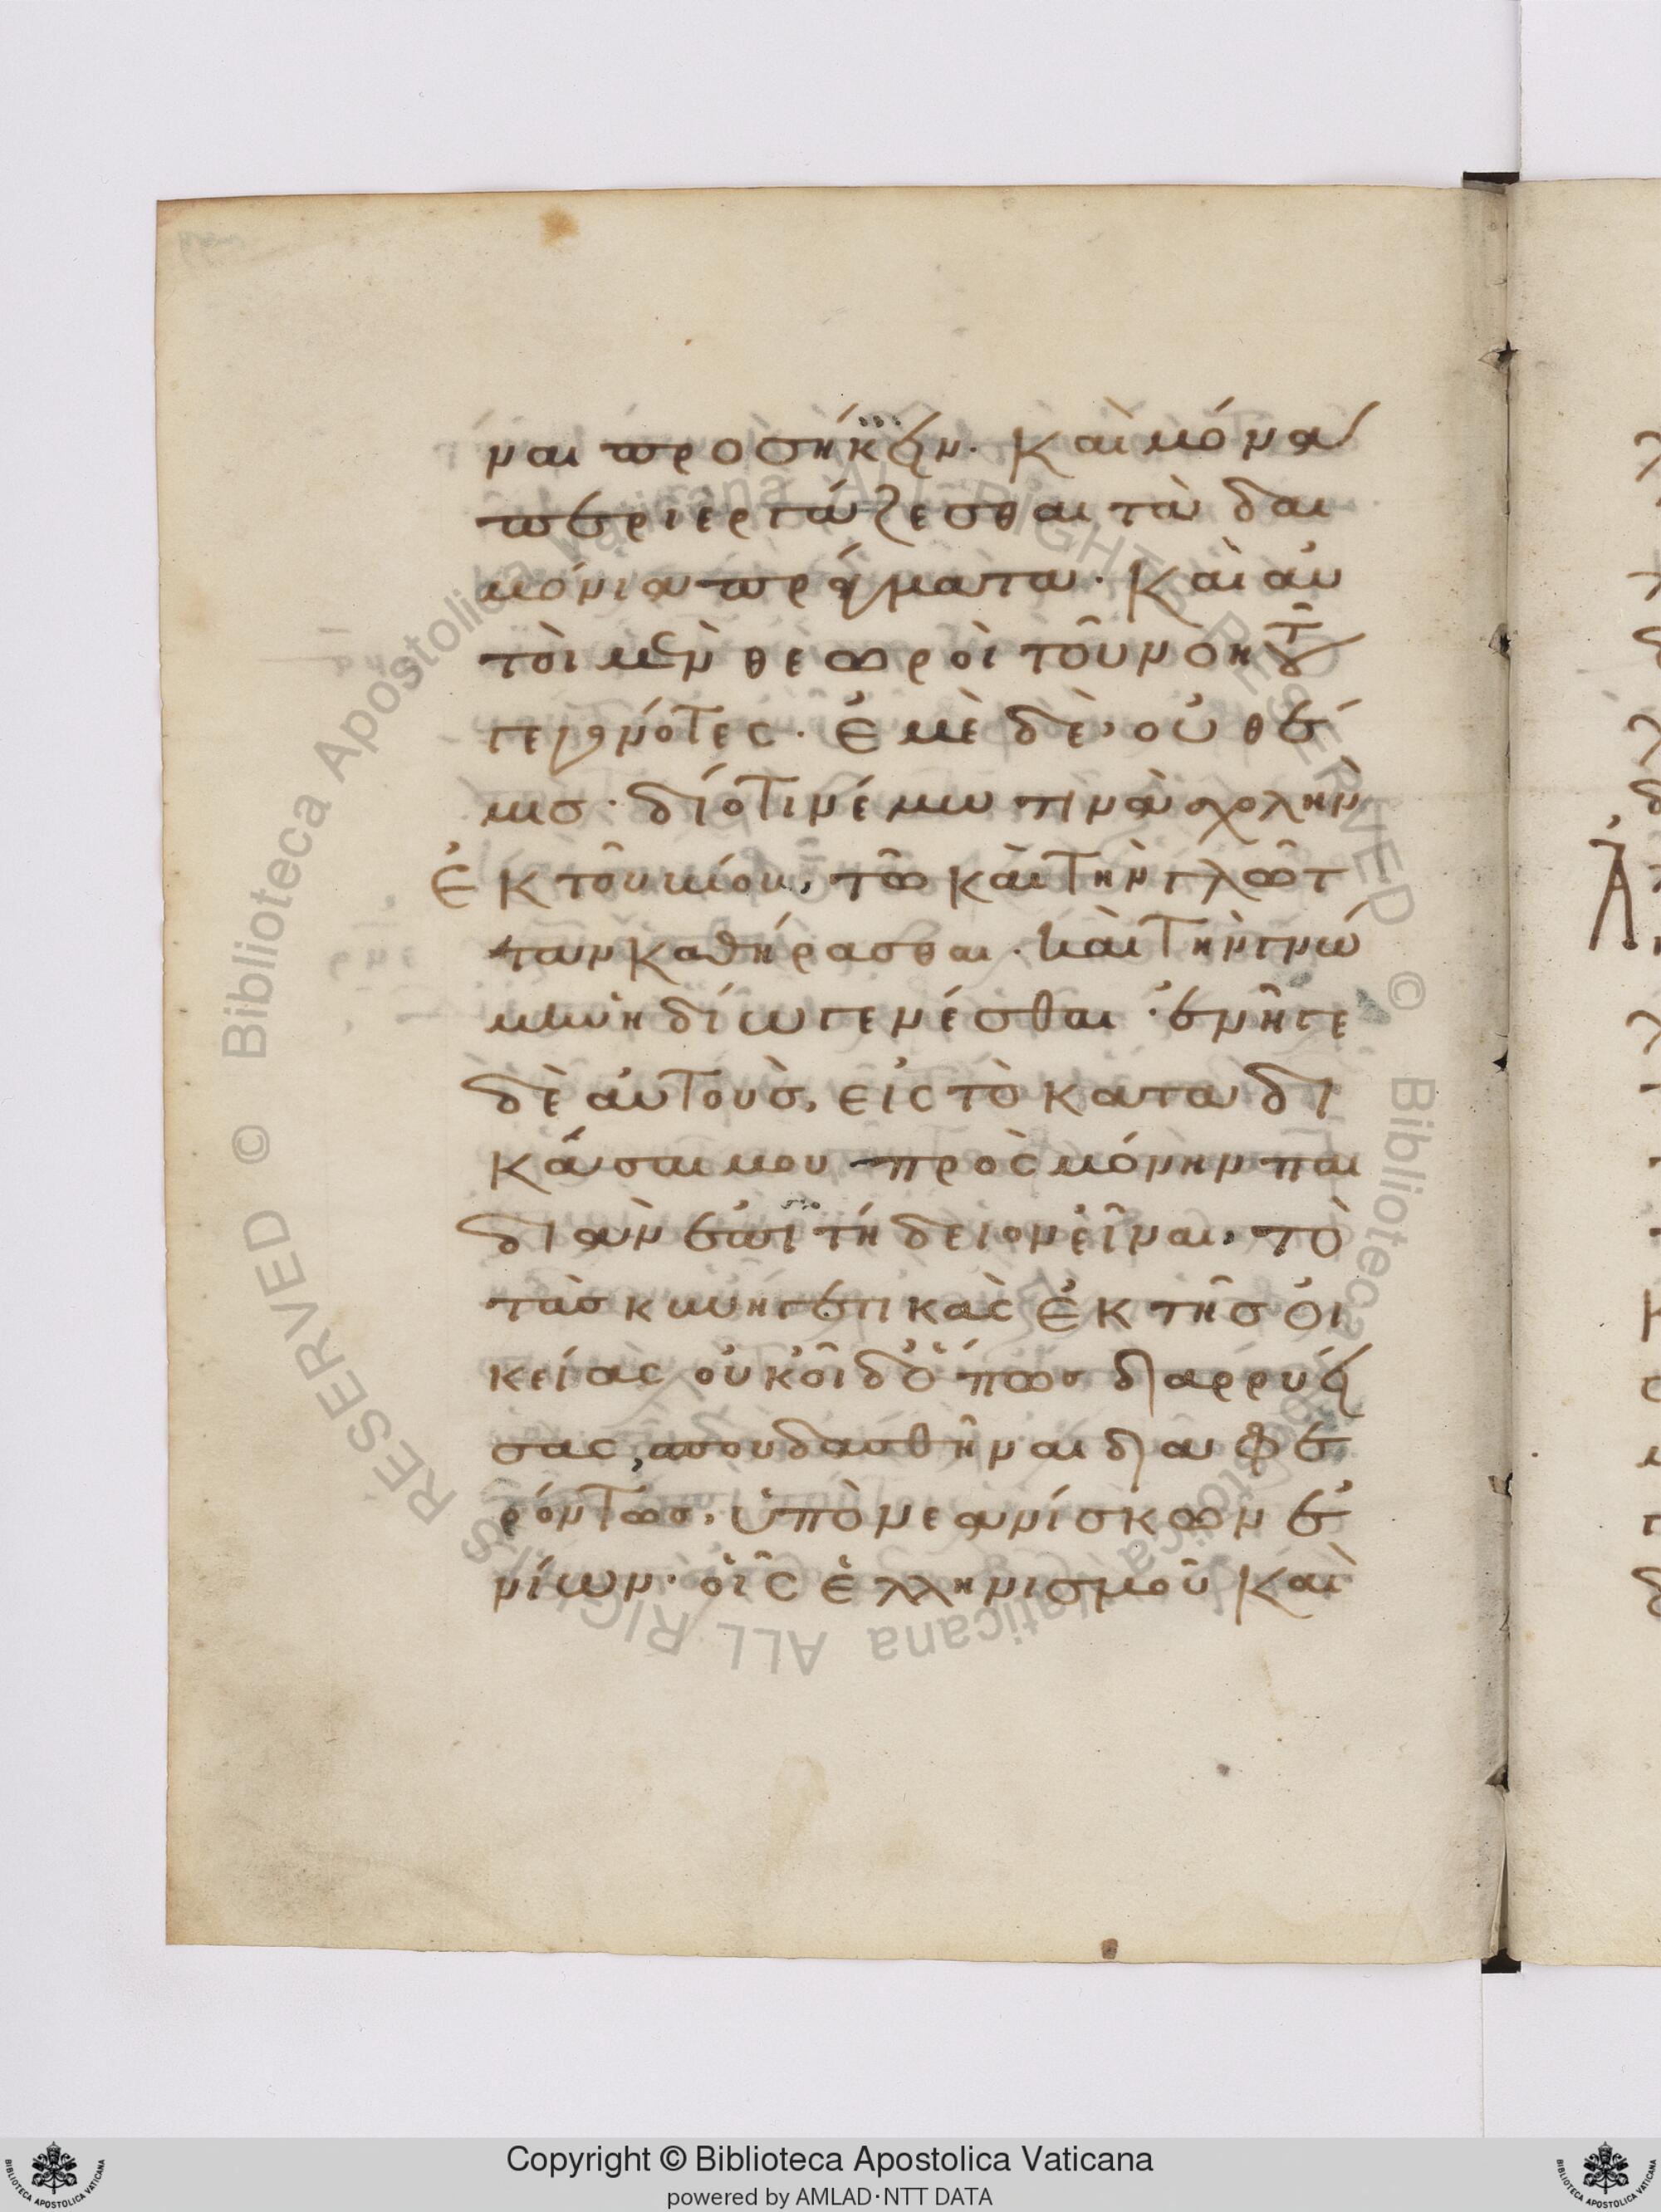 ναι προσήκειν· καὶ μόνα
περιεργάζεσθαι τὰ δαι
μόνια πράγματα· καὶ αὐ
τοὶ μὲν θεωροὶ τοῦ νοητοῦ
γεγονότες· ἐμὲ δὲ, οὐ θέ
μισ· διότι νέμω τινὰ σχολὴν
ἐκ τοῦ βίου, τῶ καὶ τὴν γλῶτ
ταν καθήρασθαι· καὶ τὴν γνώ
μην ἡδίω γενέσθαι· ἐνῆγε
δὲ αὐτοὺσ, εἰς τὸ καταδι
κάσαι μου πρὸς μόνην παι
διὰν ἐπιτήδειον εἶναι, τὸ
τὰσ κυνηγετικὰς ἐκ τῆσ οἰ
κείας οὐκ οἶδ' ὅπωσ διαρρυεί
σας, σπουδασθῆναι διαφε
ρόντωσ, ὑπὸ νεανίσκων ἐ
νίων· οἷς ἑλληνισμοῦ καὶ
Copyright © Biblioteca Apostolica Vaticana
powered by AMLAD·NTT DATA